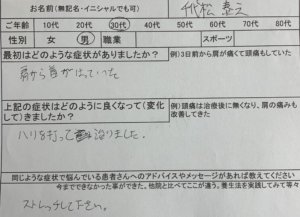 お名前(無記名・イニシャルでも可) 千代松
ご年齢 10代 20代 30代 40代 50代 60代
性別 女 男 職業 スポーツ
最初はどのような症状がありましたか? 例)3日前から肩が痛くて頭痛もしていた
肩から首がはっていた
上記の症状はどのように良くなって(変化して)きましたか? 例)頭痛は治療後に無くなり、肩の痛みも改善してきた
ハリを打って治りました。
同じような症状で悩んでいる患者さんへのアドバイスやメッセージがあれば教えてください
今までできなかった事ができた。他院と比べてここが違う。養生法を実践してみて等々
ストレッチして下さい。